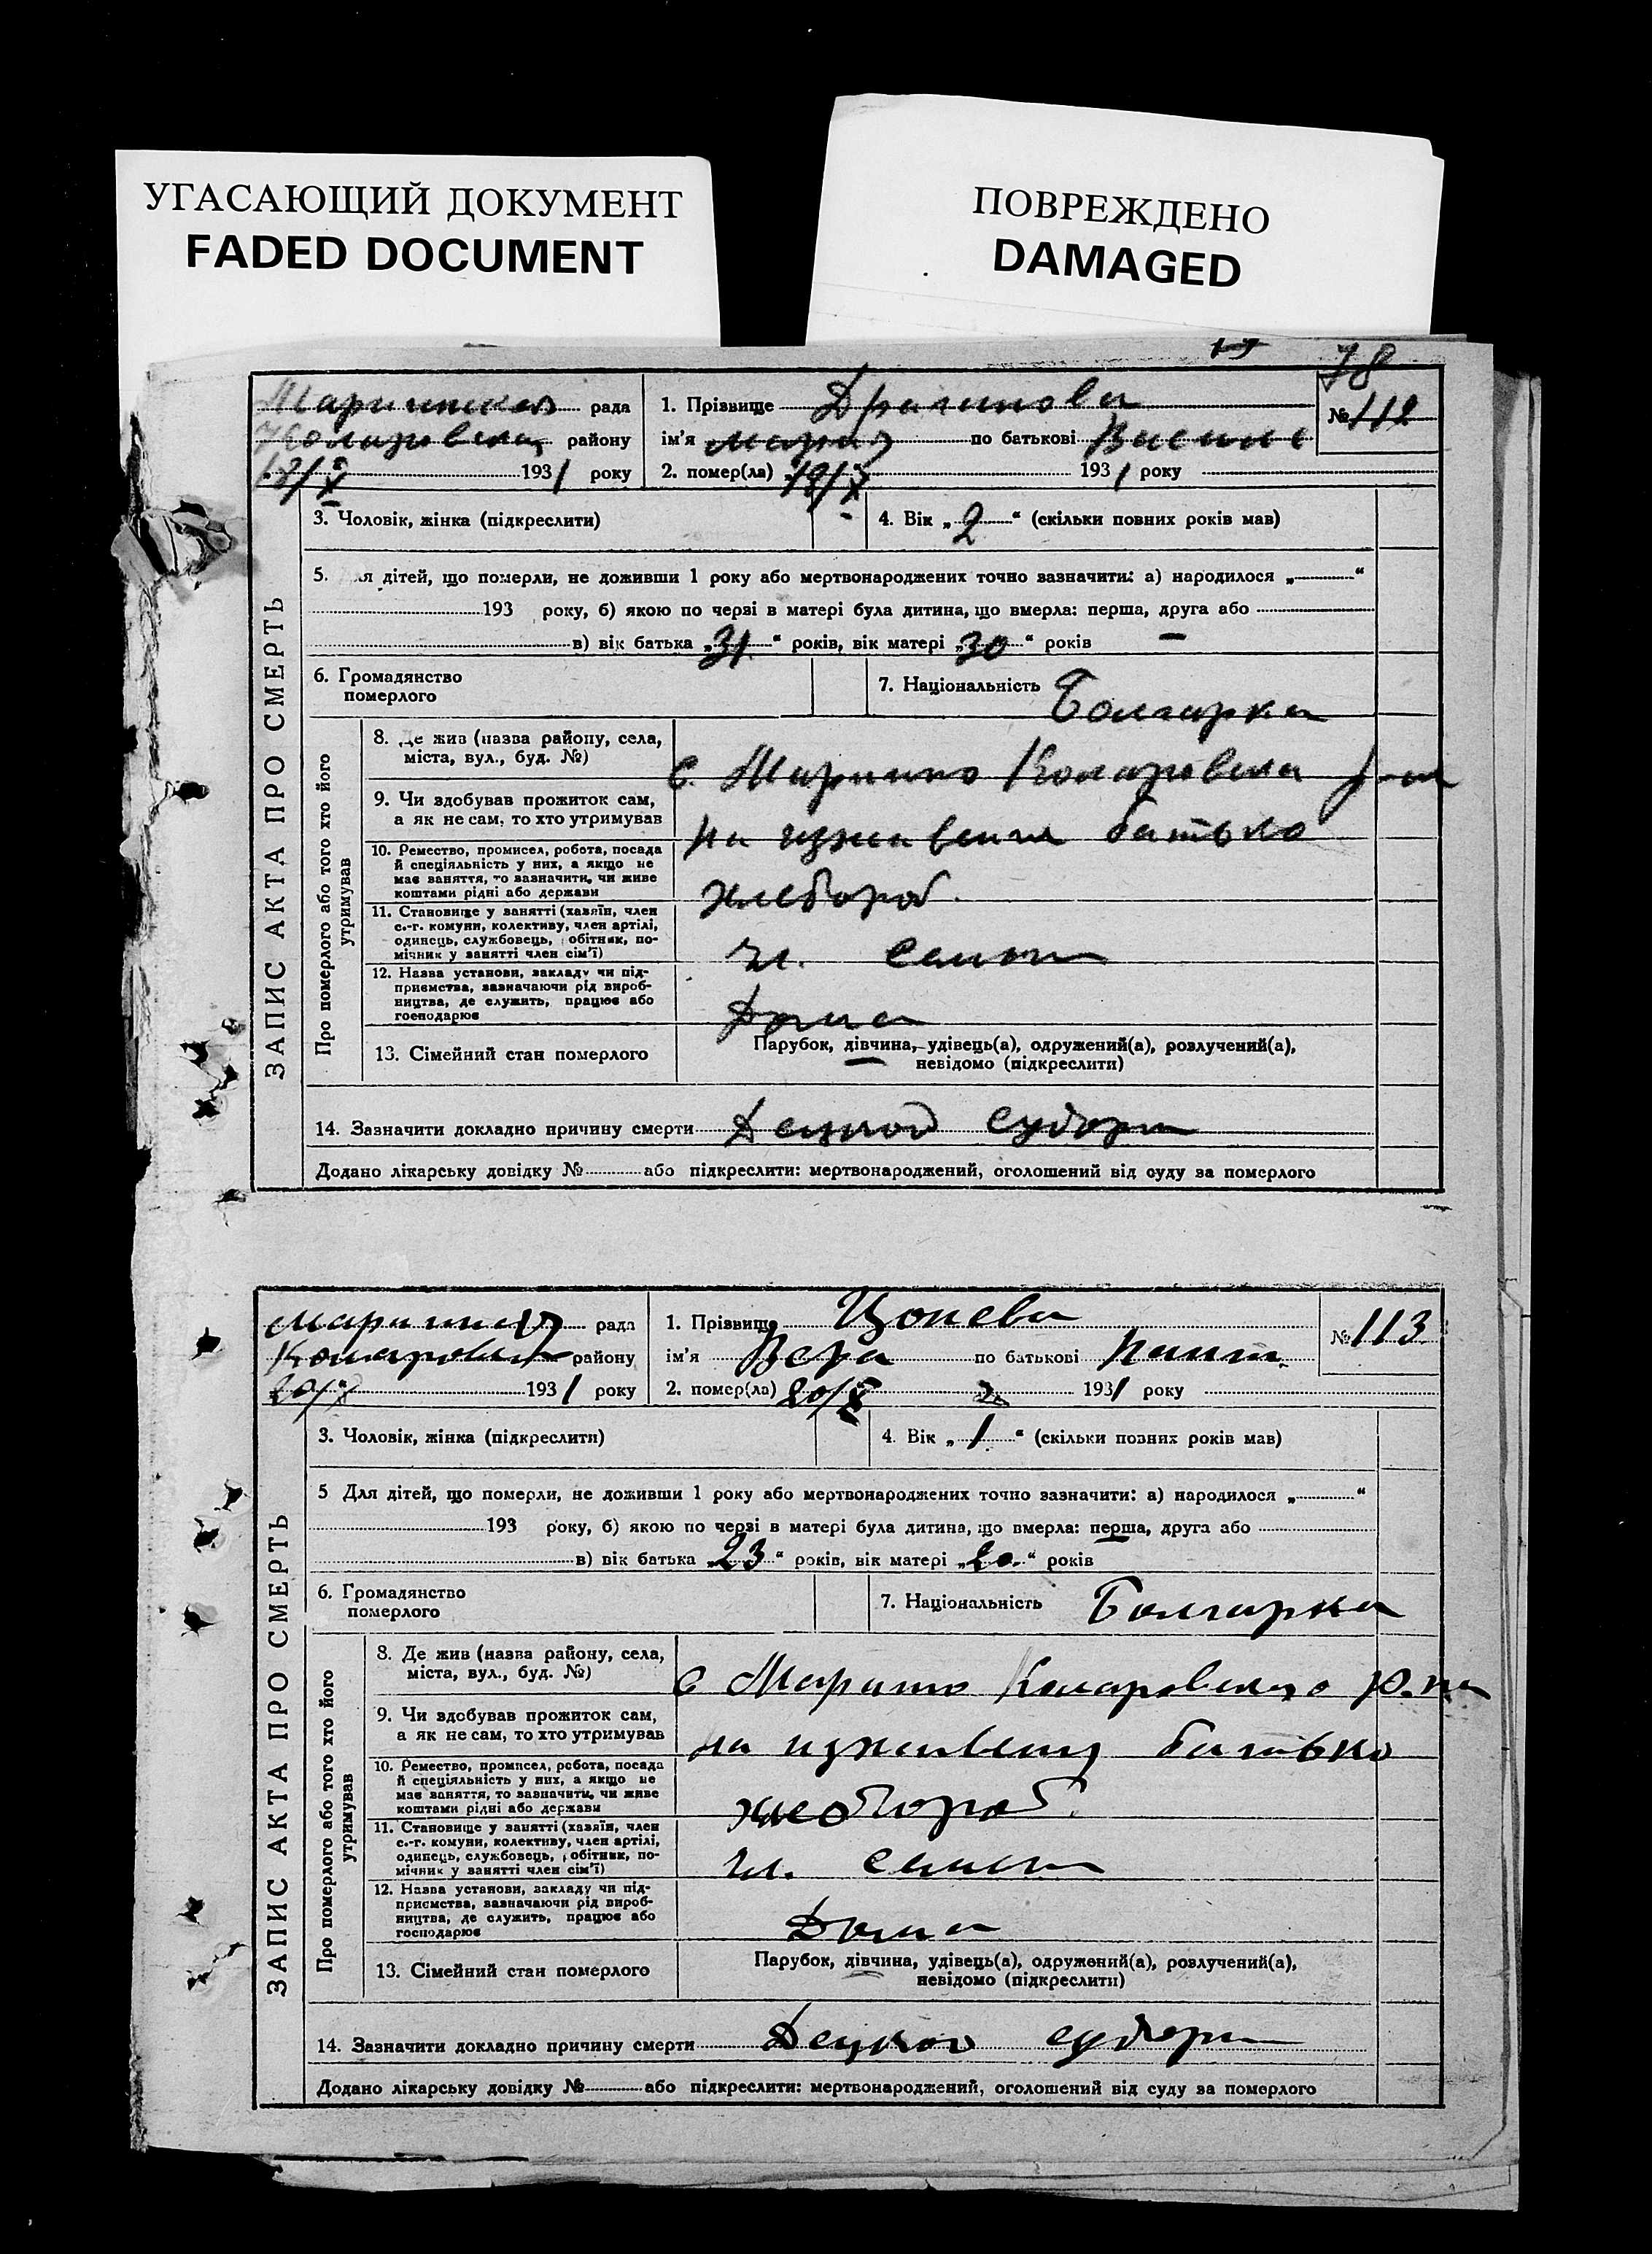 УГАСАЮЩИЙ ДОКУМЕНТ
FADED DOCUMENT
ПОВРЕЖДЕНО
DAMAGED
78
ЗАПИС АКТА ПРО СМЕРТЬ
рада
1. Прізвище Драгинова
№ 112
району
ім'я Мария по батькові
18/X 1931 року
2. помер(ла) 18/X 1931 року
3. Чоловік, жінка (підкреслити)
4. Вік „2“ (скільки повних років мав)
5. ля дітей, що померли, не доживши 1 року або мертвонароджених точно зазначити: а) народилося „ “
193 року, б) якою по черві в матері була дитина, що вмерла: перша, друга або
в) вік батька „31“ років, вік матері „30“ років
6. Громадянство
померлого
7. Національність Болгарка
Про померлого або того хто його
утримував
8. Де жив (назва району, села,
міста, вул., буд. №)
с. Марино Коларовска р-на
9. Чи здобував прожиток сам,
а як не сам, то хто утримував
на иждивении батько
10. Ремество, промисел, робота, посада
й спеціяльність у них, а якщо не
має заняття, то зазначити, чи живе
коштами рідні або держави
хлебороб.
11. Становище у занятті (хазяїн, член
с.-г. комуни, колективу, член артілі,
одинець, службовець, обітник, по-
мічник у занятті член сім'ї)
чл.
12. Назва установи, закладу чи під-
приємства, зазначаючи рід вироб-
ництва, де служить, працює або
господарює
Дома
13. Сімейний стан померлого
Парубок, дівчина, удівець(а), одружений(а), розлучений(а),
невідомо (підкреслити)
14. Зазначити докладно причину смерти
Додано лікарську довідку № або підкреслити: мертвонароджений, оголошений від суду за померлого
ЗАПИС АКТА ПРО СМЕРТЬ
рада
1. Прізвище Цонева
№ 113
району
ім'я Вера по батькові
20/X 1931 року
2. помер(ла) 20/X 1931 року
3. Чоловік, жінка (підкреслити)
4. Вік „1“ (скільки повних років мав)
5 Для дітей, що померли, не доживши 1 року або мертвонароджених точно зазначити: а) народилося „ “
193 року, б) якою по черзі в матері була дитина, що вмерла: перша, друга або
в) вік батька „23“ років, вік матері „20“ років
6. Громадянство
померлого
7. Національність Болгарка
Про померлого або того хто його
утримував
8. Де жив (назва району, села,
міста, вул., буд. №)
с Марино Коларовского р-на
9. Чи здобував прожиток сам,
а як не сам, то хто утримував
на иждивении батько
10. Ремество, промисел, робота, посада
й спеціяльність у них, а якщо не
має заняття, то зазначити, чи живе
коштами рідні або держави
хлебороб.
11. Становище у занятті (хазяїн, член
с.-г. комуни, колективу, член артілі,
одинець, службовець, обітник, по-
мічник у занятті член сім'ї)
чл.
12. Назва установи, закладу чи під-
приємства, зазначаючи рід вироб-
ництва, де служить, працює або
господарює
Дома
13. Сімейний стан померлого
Парубок, дівчина, удівець(а), одружений(а), розлучений(а),
невідомо (підкреслити)
14. Зазначити докладно причину смерти
Додано лікарську довідку № або підкреслити: мертвонароджений, оголошений від суду за померлого